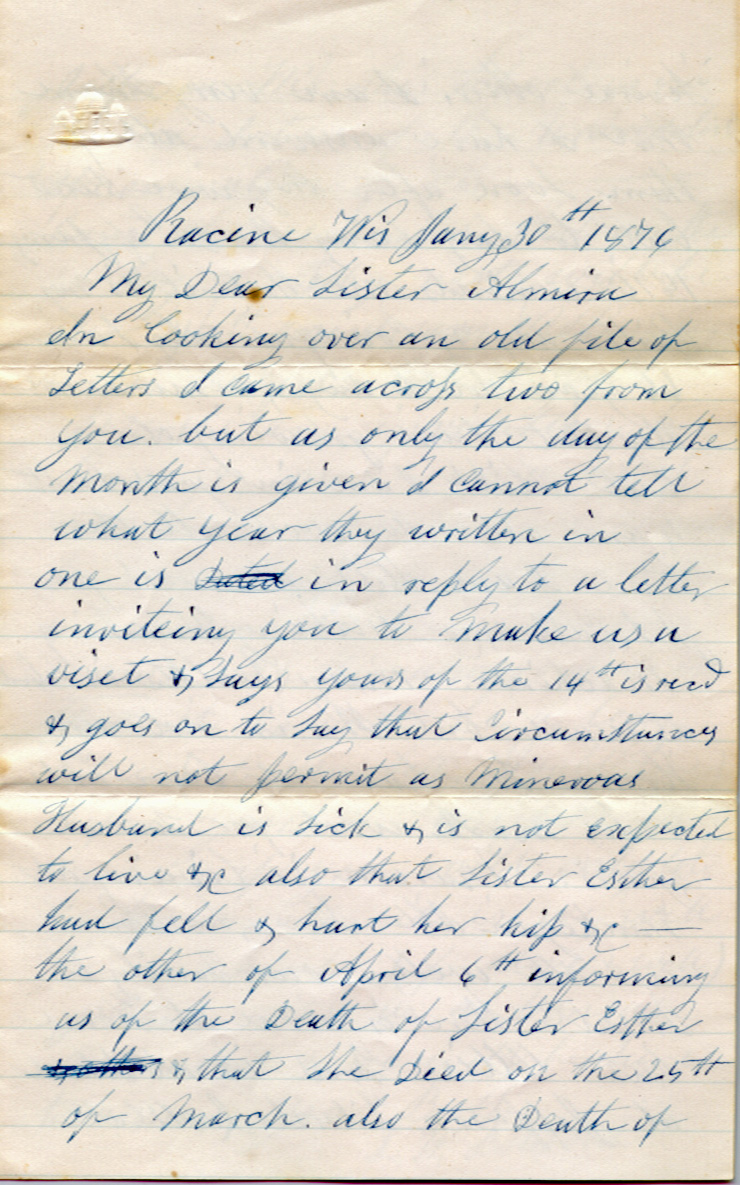 Racine Wis Jany 30th 1876
My Dear Sister Almira
In looking over an old file of
Letters I came across two from
you. but as only the day of the
Month is given I cannot tell
what year they written in
one is Dated in reply to a letter
inviteing you to make us a
viset & says yours of the 14th is recd
& goes on to say that Circumstances
will not permit as Minervas
Husband is sick & is not expected
to live &c also that Sister Esther
had fell & hurt her hip &c —
the other of April 6th informing
us of the Death of Sister Esther
& that she Died on the 25th
of March. also the Death of